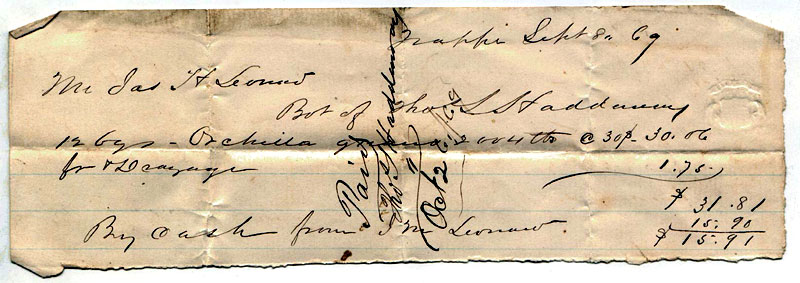 Trappe Sept 8th 69
Mr Jas H Leonard
Bot of Thos S Haddaway
12 bgs - Orchilla guano 2004 lbs @ 30$ - 30.06
frt & Drayage 1.75
$ 31.81
By cash from J M Leonard 15.90
$ 15.91
Paid
Thos S Haddaway
Oct 2nd /69